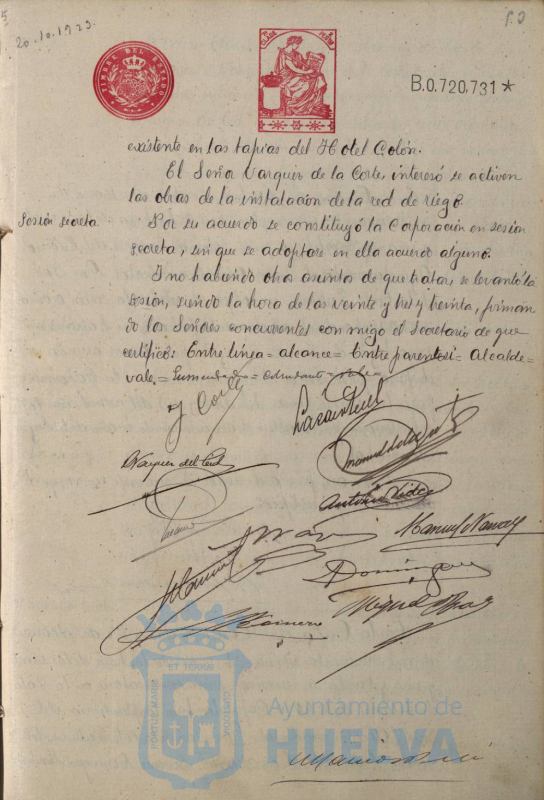 20.10.1923.
TIMBRE DEL ESTADO
B.0.720,731*
existente en las tapias del Hotel Colón.
El Señor Vazquez de la Corte, interesó se activen
las obras de la instalación de la red de riego.
Sesión secreta
Por su acuerdo se constituyó la Corporación en sesión
secreta, sin que se adoptase en ella acuerdo alguno.
Y no habiendo otro asunto de que tratar, se levantó la
sesión, siendo la hora de las veinte y tres y treinta, firman
do los Señores concurrentes conmigo el Secretario de que
certifico: Entre línea = alcance = Entre parentesi = Alcalde-
vale, = Enmendado =
J Coll
Vazquez del
Antonio
Manuel
Dominguez
Romero
Miguel
PORTUS MARIS ET TERRAE CUSTODIA
Ayuntamiento de
HUELVA